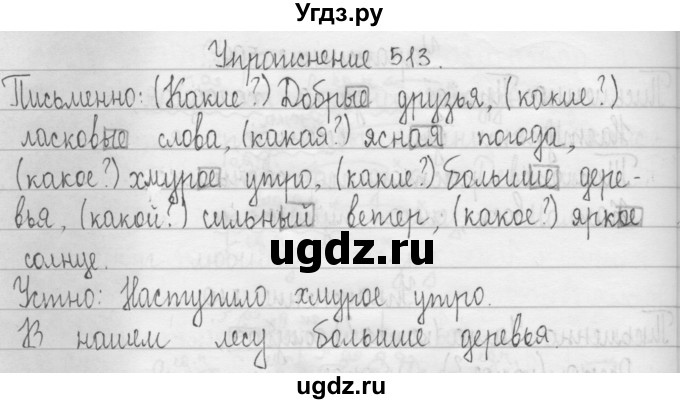 Угдз.ру
Упражнение 513.
Письменно: (Какие?) Добрые друзья, (какие?)
ласковые слова, (какая?) ясная погода,
(какое?) хмурое утро, (какие?) большие дере-
вья, (какой?) сильный ветер, (какое?) яркое
ugdz.ru
солнце.
Устно: Наступило хмурое утро.
В нашем лесу большие деревья.
ugdz.ru